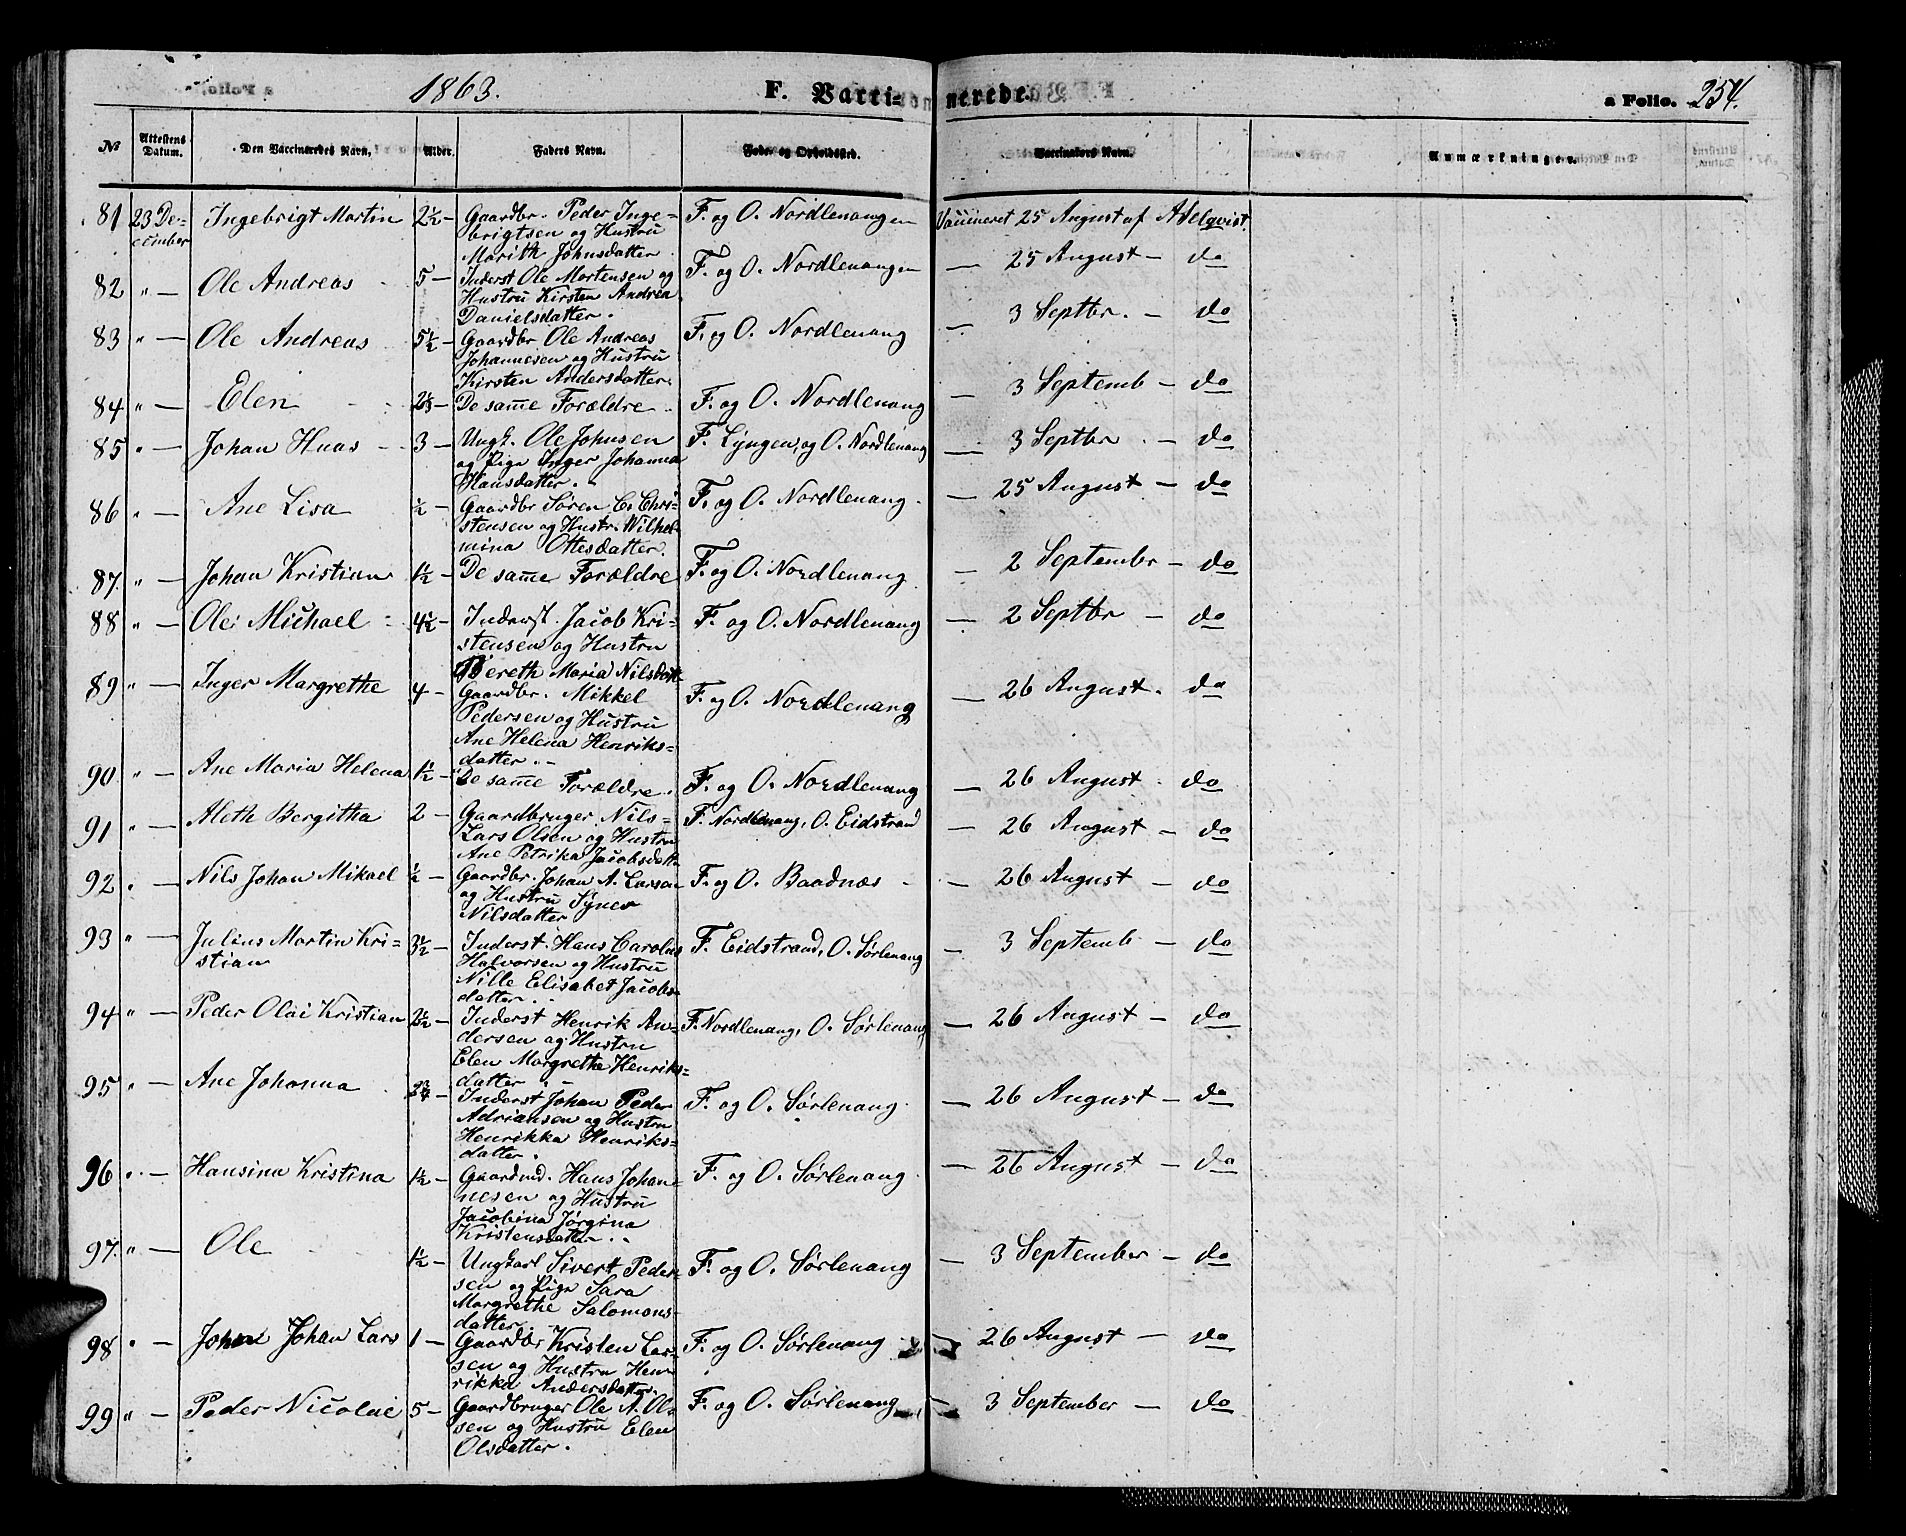 1863. F. Vacci- nerede. a Folio. 254.
№ Attestens Datum. Den Vaccineredes Navn, Alder. Faders Navn. Føde- og Opholdssted. Vaccinators Navn. Anmærkninger.
81 23 De- Ingebrigt Martin 2½ - Gaardbr. Peder Inge- F. og O. Nordlenangen Vaccineret 25 August af A.
cember brigtsen og Hustru
Marith Johnsdatter
82 " — Ole Andreas 5 - Inderst Ole Mortensen og F. og O. Nordlenangen — 25 August — do
Hustru Kirsten Andrea
Danielsdatter.
83 " — Ole Andreas 5½ - Gaardbr Ole Andreas F. og O. Nordlenang — 3 Septbr. — do
Johannesen og Hustru
Kirsten Andersdatter.
84 " — Elen De samme Forældre F. og O. Nordlenang — 3 Septemb — do
85 " — Johan Haas 3 - Ungk. Ole Johnsen F. Lyngen, og O. Nordlenang — 3 Septbr — do
og Pige Inger Johanna
Hansdatter.
86 " — Ane Lisa ½ - Gaardbr Søren C. Chri- F. og O. Nordlenang. — 25 August — do
stensen og Hustr. Wilhel-
mina Ottesdatter.
87. " — Johan Kristian 1½ - De samme Forældre F. og O. Nordlenang — 2 Septembr — do
88 " — Ole Michael 4½ - Inderst. Jacob Kri- F. og O. Nordlenang — 2 Septbr — do
stensen og Hustru
Bereth Maria Nilsdatt
89 " — Inger Margrethe 4 - Gaardbr. Mikkel F. og O. Nordlenang — 26 August. do
Pedersen og Hustru
Ane Helena Henriks-
datter. -
90. " — Ane Maria Helena 1½ - De samme Forældre. F. og O. Nordlenang — 26 August. do
91 " — Aleth Bergitha 2 - Gaardbruger. Nils- F. Nordlenang, O. Eidstrand — 26 August — do
Lars Olsen og Hustru
Ane Petrika Jacobsdatt
92 . — Nils Johan Mikael ½ - Gaardbr. Johan A. Larsen F. og O. Baadnæs - — 26 August — do
og Hustru
Nilsdatter
93 " — Julius Martin Kri- 3½ - Inderst. Hans Carolus F. Eidstrand, O. Sørlenang — 3 Septemb — do
stian Halvorsen og Hustru
Nille Elisabet Jacobs-
datter. -
94 " — Peder Olai Kristian 2½ - Inderst Henrik An- F. Nordlenang, O. Sørlenang — 26 August — do
dersen og Hustru
Elen Margrethe Henriks-
datter -
95 " — Ane Johanna 2¾ - Inderst Johan Peder F. og O. Sørlenang. — 26 August — do
Adriansen og Hustru
Henrikka Henriks-
datter.
96 " — Hansina Kristina 1½ - Gaardmd. Hans Johan- F. og O. Sørlenang. — 26 August — do
nesen og Hustru
Jacobina Jørgina
Kristensdatter. -
97. " — Ole 1½ - Ungkarl Sivert Peder- F. og O. Sørlenang — 3 September — do
sen og Pige Sara
Margrethe Salomons-
datter.
98 " — Johan Lars 1 - Gaardbr Kristen Lar- F. og O. Sørlenang — 26 August — do
sen og Hustru Hen
rikka Andersdatter.
99 " — Peder Nicolai 5 - Gaardbruger Ole A. Ol- F. og O. Sørlenang — 3 September — do
sen og Hustru Elen
Olsdatter.